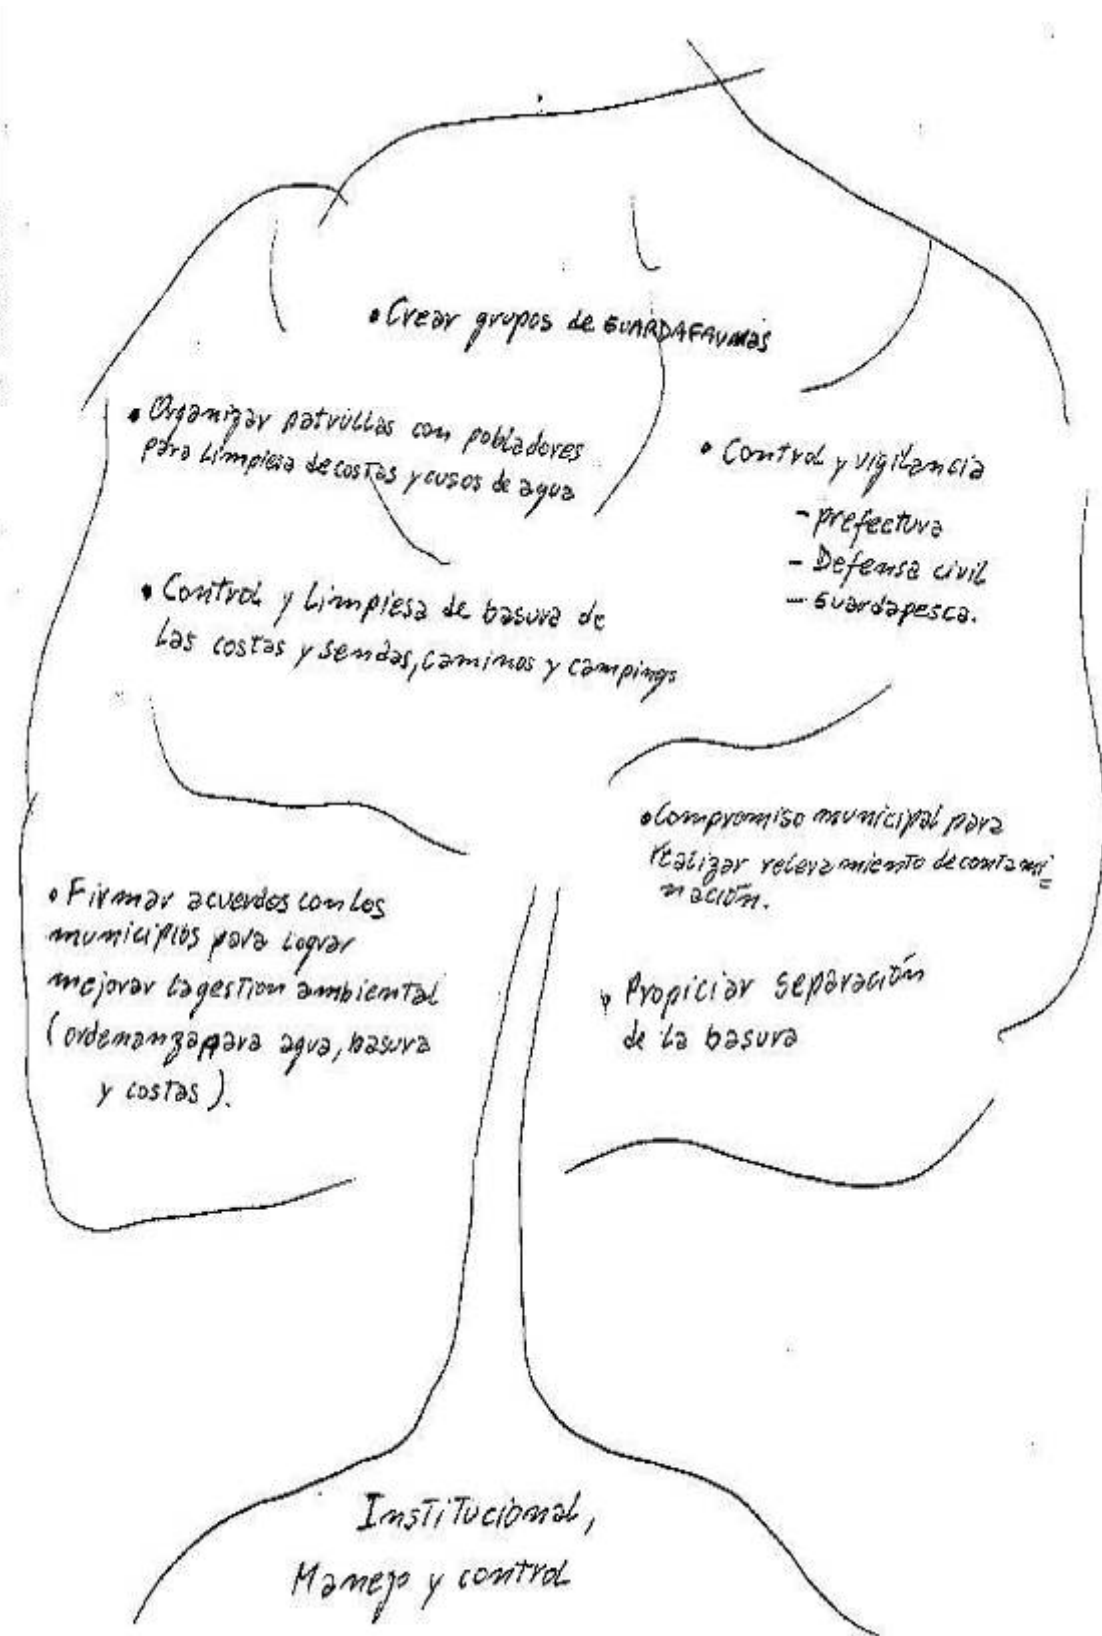 • Crear grupos de GUARDAFAUNAS
• Organizar patrullas con pobladores
para Limpiesa de costas y cusos de agua
• Control y vigilancia
- prefectura
- Defensa civil
- Guardapesca.
• Control y Limpiesa de basura de
las costas y sendas, caminos y campings
• Compromiso municipal para
realizar relevamiento de contami=
nación.
• Firmar acuerdos con los
municipios para lograr
mejorar la gestion ambiental
(ordenanza para agua, basura
y costas).
• Propiciar separación
de la basura
Institucional,
Manejo y control